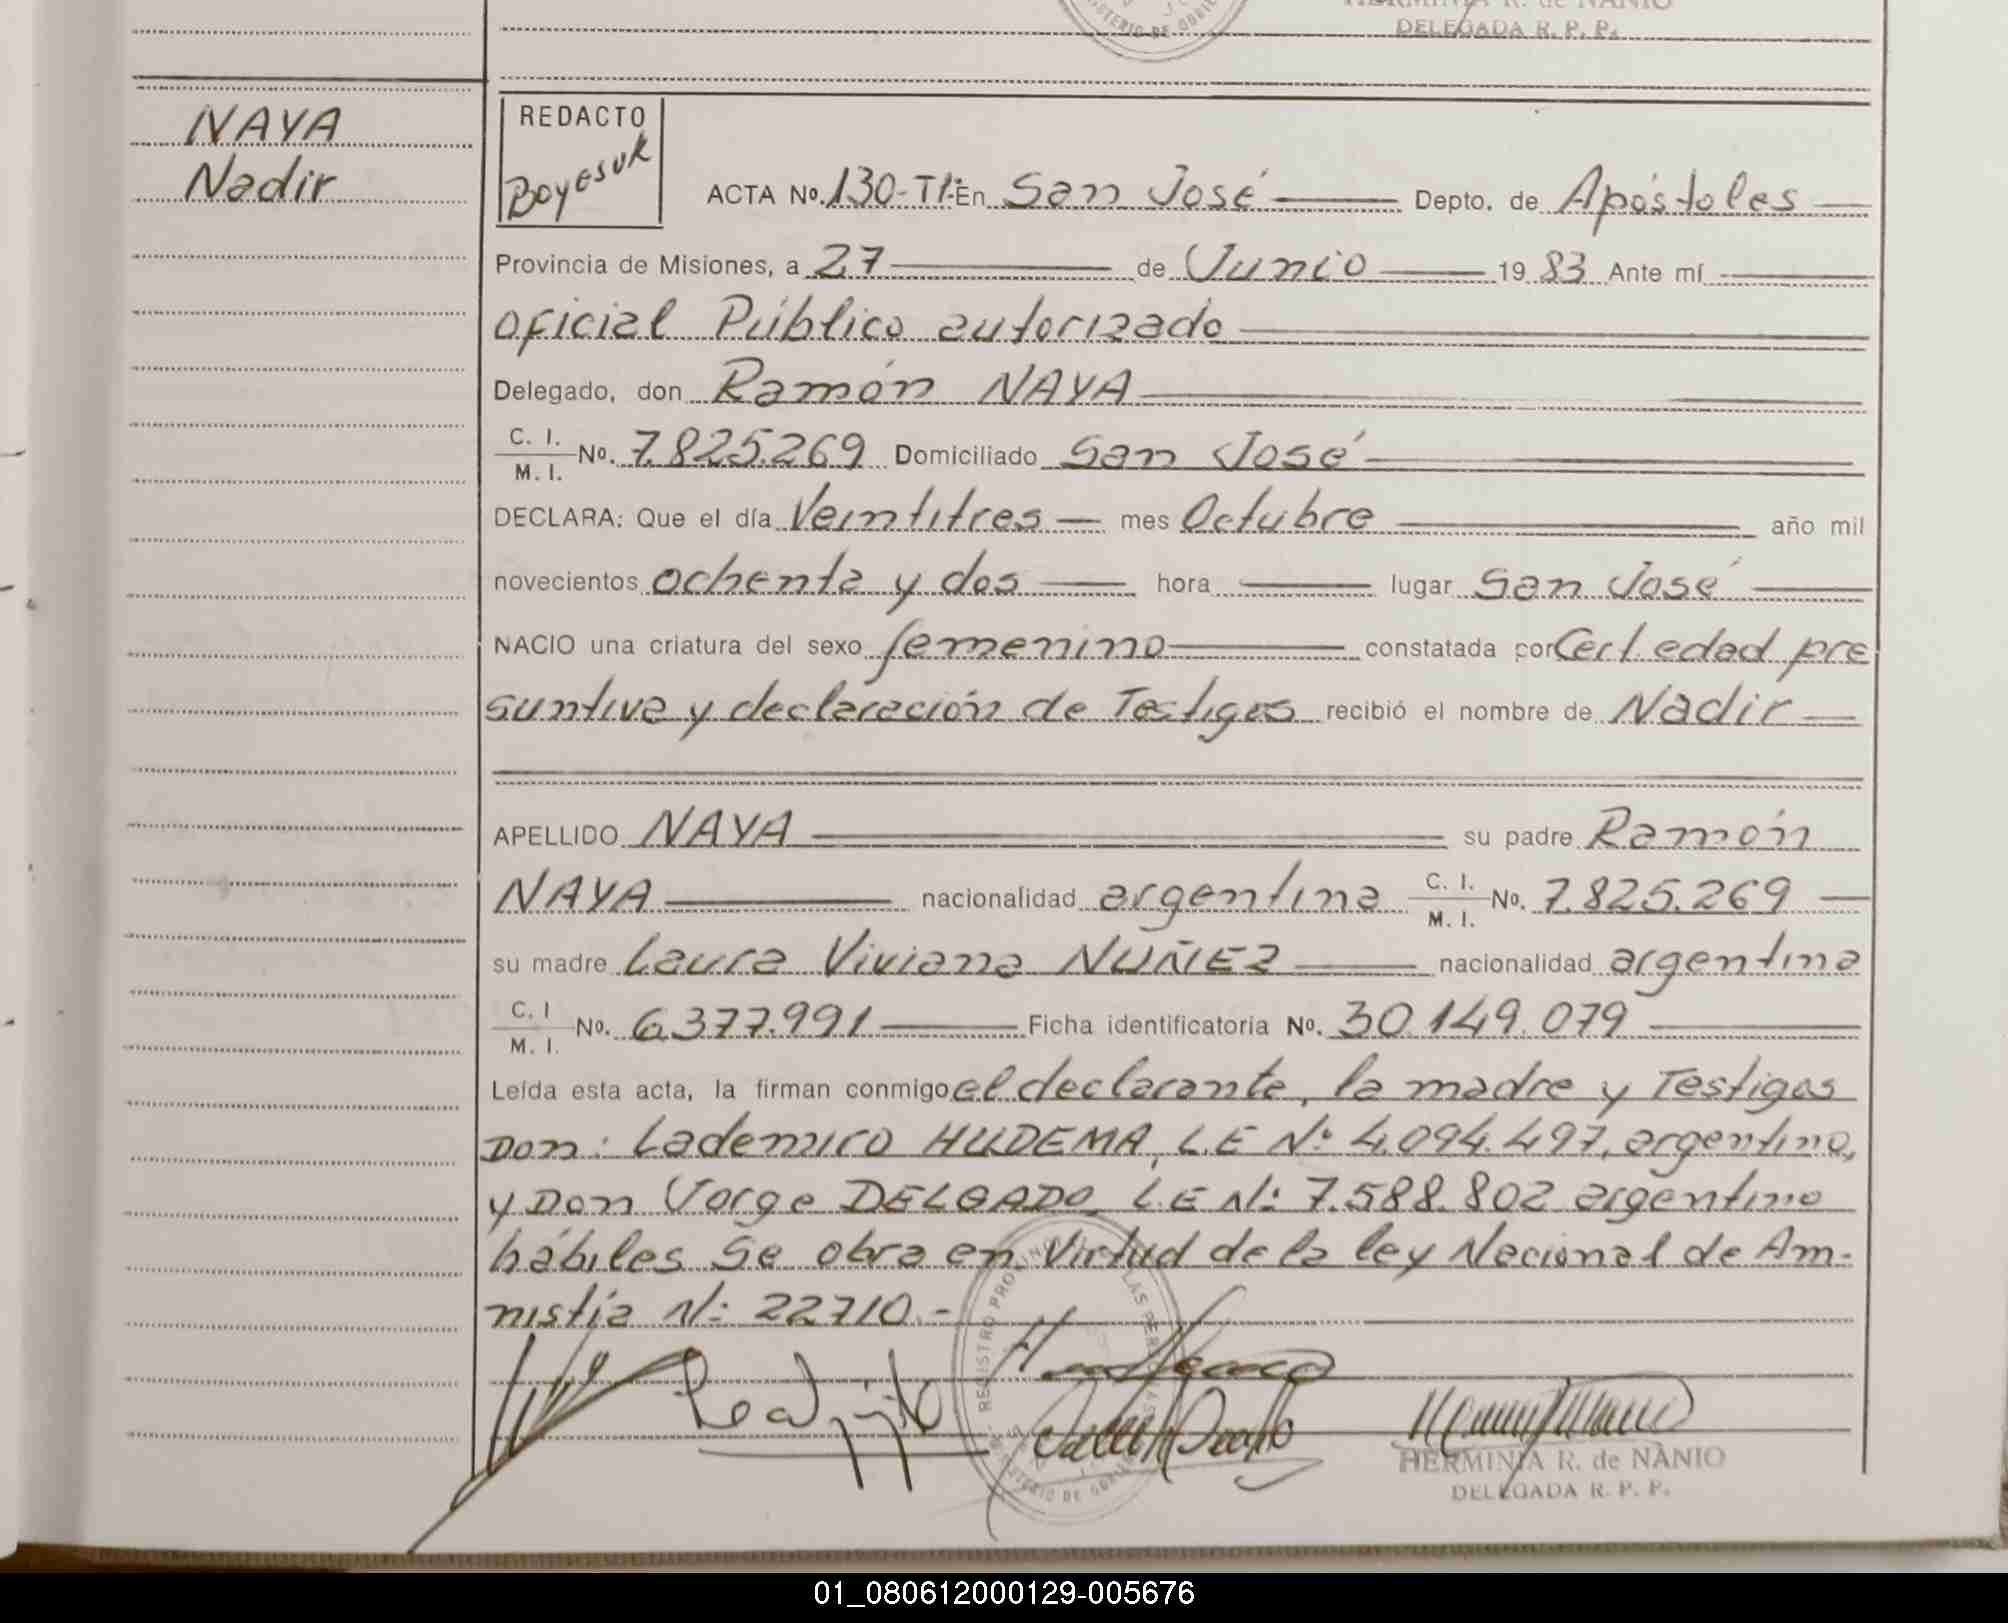 HERMINIA R. de NANIO
DELEGADA R. P. P.
NAYA
Nadir
REDACTO
Boyesuk
ACTA No. 130-TI: En San José Depto. de Apóstoles
Provincia de Misiones, a 27 de Junio 1983 Ante mí
oficial Público autorizado
Delegado, don Ramón NAYA
C. I.
M. I. No. 7.825.269 Domiciliado San José
DECLARA: Que el día Veintitres mes Octubre año mil
novecientos ochenta y dos hora lugar San José
NACIO una criatura del sexo femenino constatada por Cert. edad pre
suntiva y declaración de Testigos recibió el nombre de Nadir
APELLIDO NAYA su padre Ramón
NAYA nacionalidad argentina C. I. M. I. No. 7.825.269
su madre Laura Viviana NUÑEZ nacionalidad argentina
C. I
M. I. No. 6.377.991 Ficha identificatoria No. 30.149.079
Leída esta acta, la firman conmigo el declarante, la madre y Testigos
Don: Lademiro HUDEMA, L.E Nº 4.094.497, argentino,
y Don Jorge DELGADO, L.E Nº 7.588.802 argentino
hábiles Se obra en Virtud de la ley Nacional de Am-
nistía Nº 22710.-
REGISTRO PROVINCIAL DE LAS PERSONAS
MINISTERIO DE GOBIERNO
HERMINIA R. de NANIO
DELEGADA R. P. P.
01_080612000129-005676